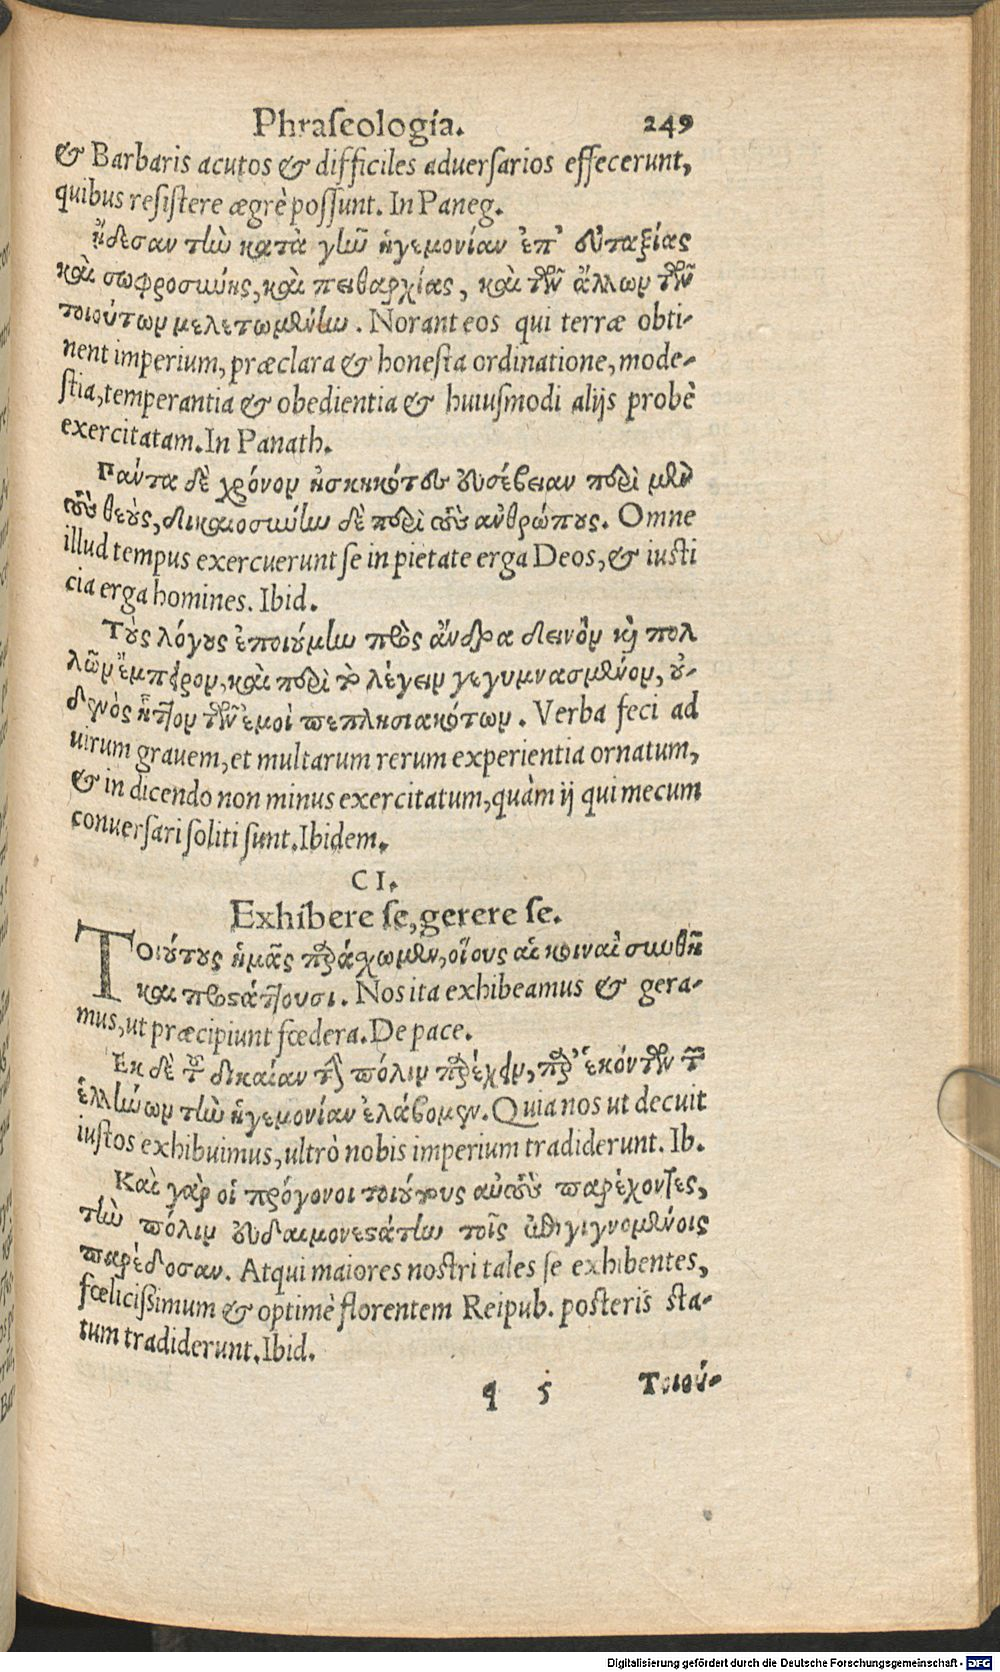 Phraſeologia. 249
& Barbaris acutos & difficiles adverſarios effecerunt,
quibus reſiſtere ægrè poſſunt. In Paneg.
ᾔδεσαν τὴν κατὰ γῆν ἡγεμονίαν ἐπ' εὐταξίας
καὶ σωφροσύνης, καὶ πειθαρχίας, καὶ τῶν ἄλλων τῶν
τοιούτων μελετωμένην. Norant eos qui terræ obti-
nent imperium, præclara & honeſta ordinatione, mode-
ſtia, temperantia & obedientia & huiuſmodi alijs probè
exercitatam. In Panath.
Πάντα δὲ χρόνον ἠσκηκότου εὐσέβειαν περὶ μὲν
τοὺς θεοὺς, δικαιοσύνην δὲ περὶ τοὺς ἀνθρώπους. Omne
illud tempus exercuerunt ſe in pietate erga Deos, & iuſti
cia erga homines. Ibid.
Τοὺς λόγους ἐποιούμην πρὸς ἄνδρα δεινὸν καὶ πολ
λῶν ἔμπειρον, καὶ περὶ τὸ λέγειν γεγυμνασμένον, οὐ-
δενὸς ἧττον τῶν ἐμοὶ πεπλησιακότων. Verba feci ad
uirum grauem, et multarum rerum experientia ornatum,
& in dicendo non minus exercitatum, quàm ij qui mecum
conuerſari ſoliti ſunt. Ibidem.
CI.
Exhibere ſe, gerere ſe.
Τοιούτους ἡμᾶς παράσχωμεν, οἵους αἱ κοιναὶ συνθῆ
και προστάττουσι. Nos ita exhibeamus & gera-
mus, ut præcipiunt fœdera. De pace.
Ἐκ δὲ τοῦ δικαίαν τὴν πόλιν παρέχειν, παρ' ἑκόντων τῶν
ἑλλήνων τὴν ἡγεμονίαν ἐλάβομεν. Quia nos ut decuit
iuſtos exhibuimus, ultrò nobis imperium tradiderunt. Ib.
Καὶ γὰρ οἱ πρόγονοι τοιούτους αὑτοὺς παρέχοντες,
τὴν πόλιν εὐδαιμονεστάτην τοῖς ἐπιγιγνομένοις
παρέδοσαν. Atqui maiores noſtri tales ſe exhibentes,
fœliciſſimum & optimè florentem Reipub. poſteris ſta-
tum tradiderunt. Ibid.
q 5 Τοιού-
Digitalisierung gefördert durch die Deutsche Forschungsgemeinschaft - DFG